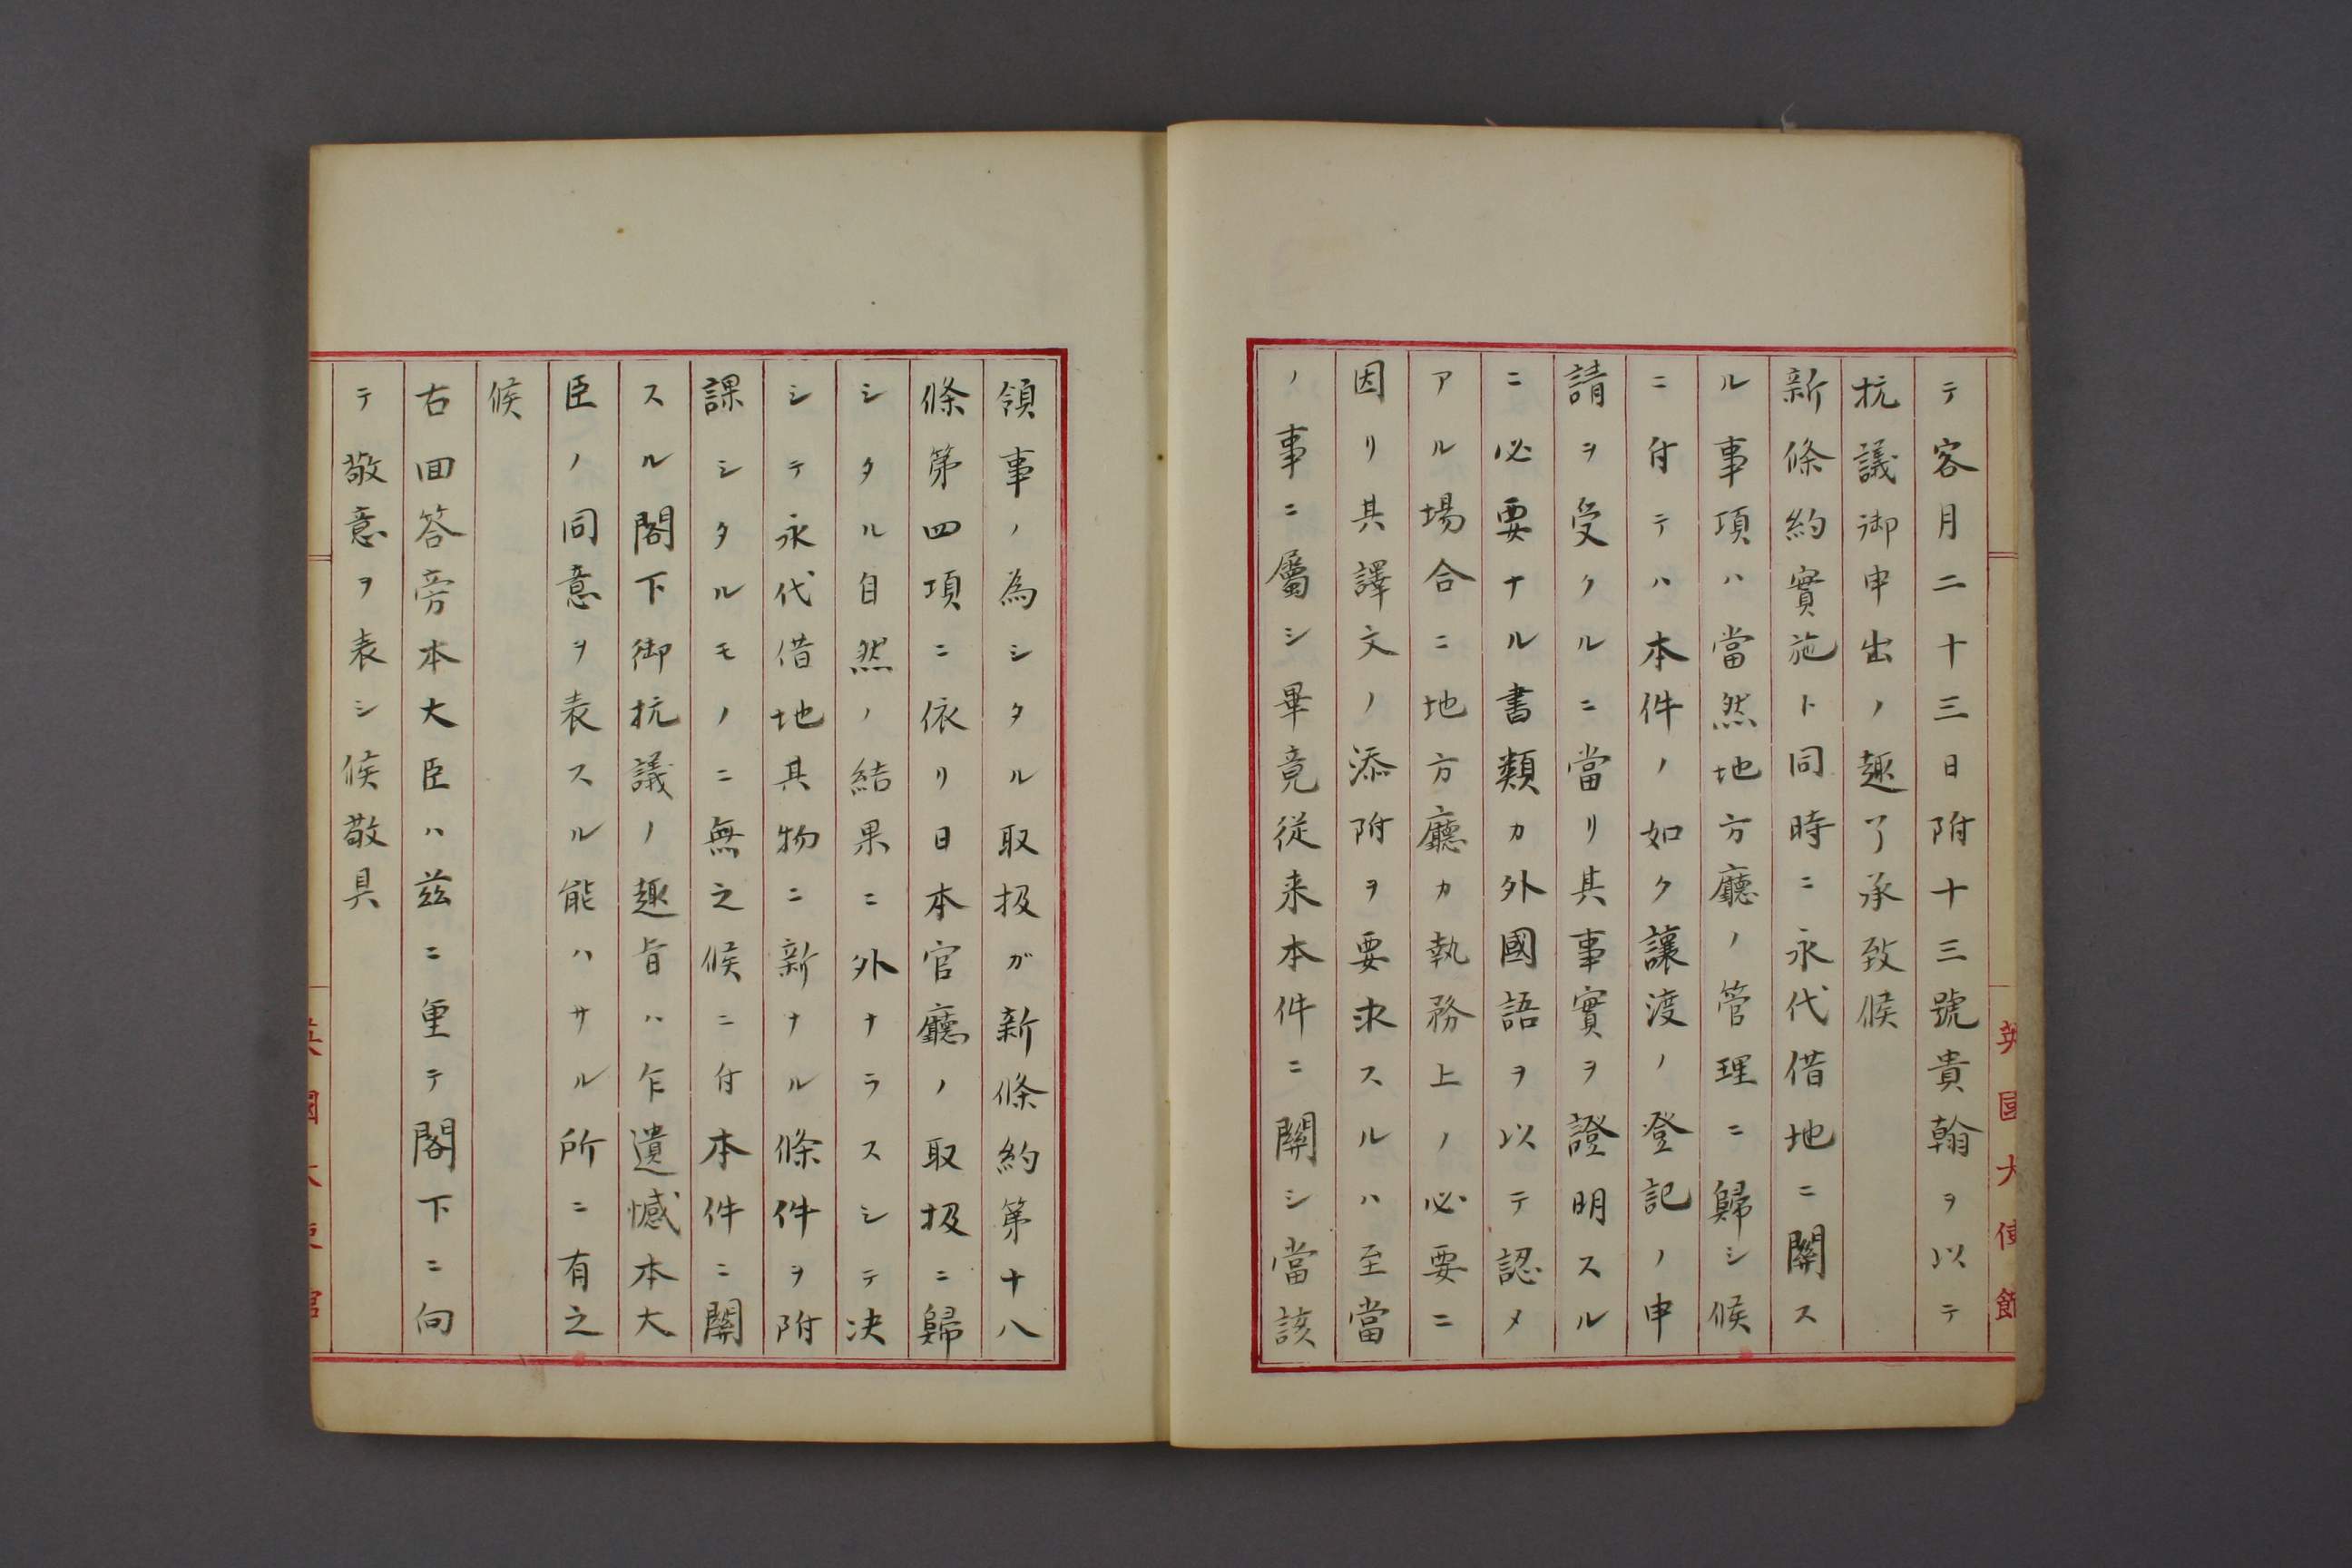 テ客月二十三日附十三號貴翰ヲ以テ
抗議御申出ノ趣了承致候
新條約實施ト同時ニ永代借地ニ關ス
ル事項ハ當然地方廳ノ管理ニ歸シ候
ニ付テハ本件ノ如ク讓渡ノ登記ノ申
請ヲ受クルニ當リ其事實ヲ證明スル
ニ必要ナル書類カ外國語ヲ以テ認メ
アル場合ニ地方廳カ執務上ノ必要ニ
因リ其譯文ノ添附ヲ要求スルハ至當
ノ事ニ屬シ畢竟從来本件ニ關シ當該
領事ノ為シタル取扱ガ新條約第十八
條第四項ニ依リ日本官廳ノ取扱ニ歸
シタル自然ノ結果ニ外ナラスシテ决
シテ永代借地其物ニ新ナル條件ヲ附
課シタルモノニ無之候ニ付本件ニ關
スル閣下御抗議ノ趣旨ハ乍遺憾本大
臣ノ同意ヲ表スル能ハサル所ニ有之
候
右回答旁本大臣ハ茲ニ重テ閣下ニ向
テ敬意ヲ表シ候敬具
英國大使館